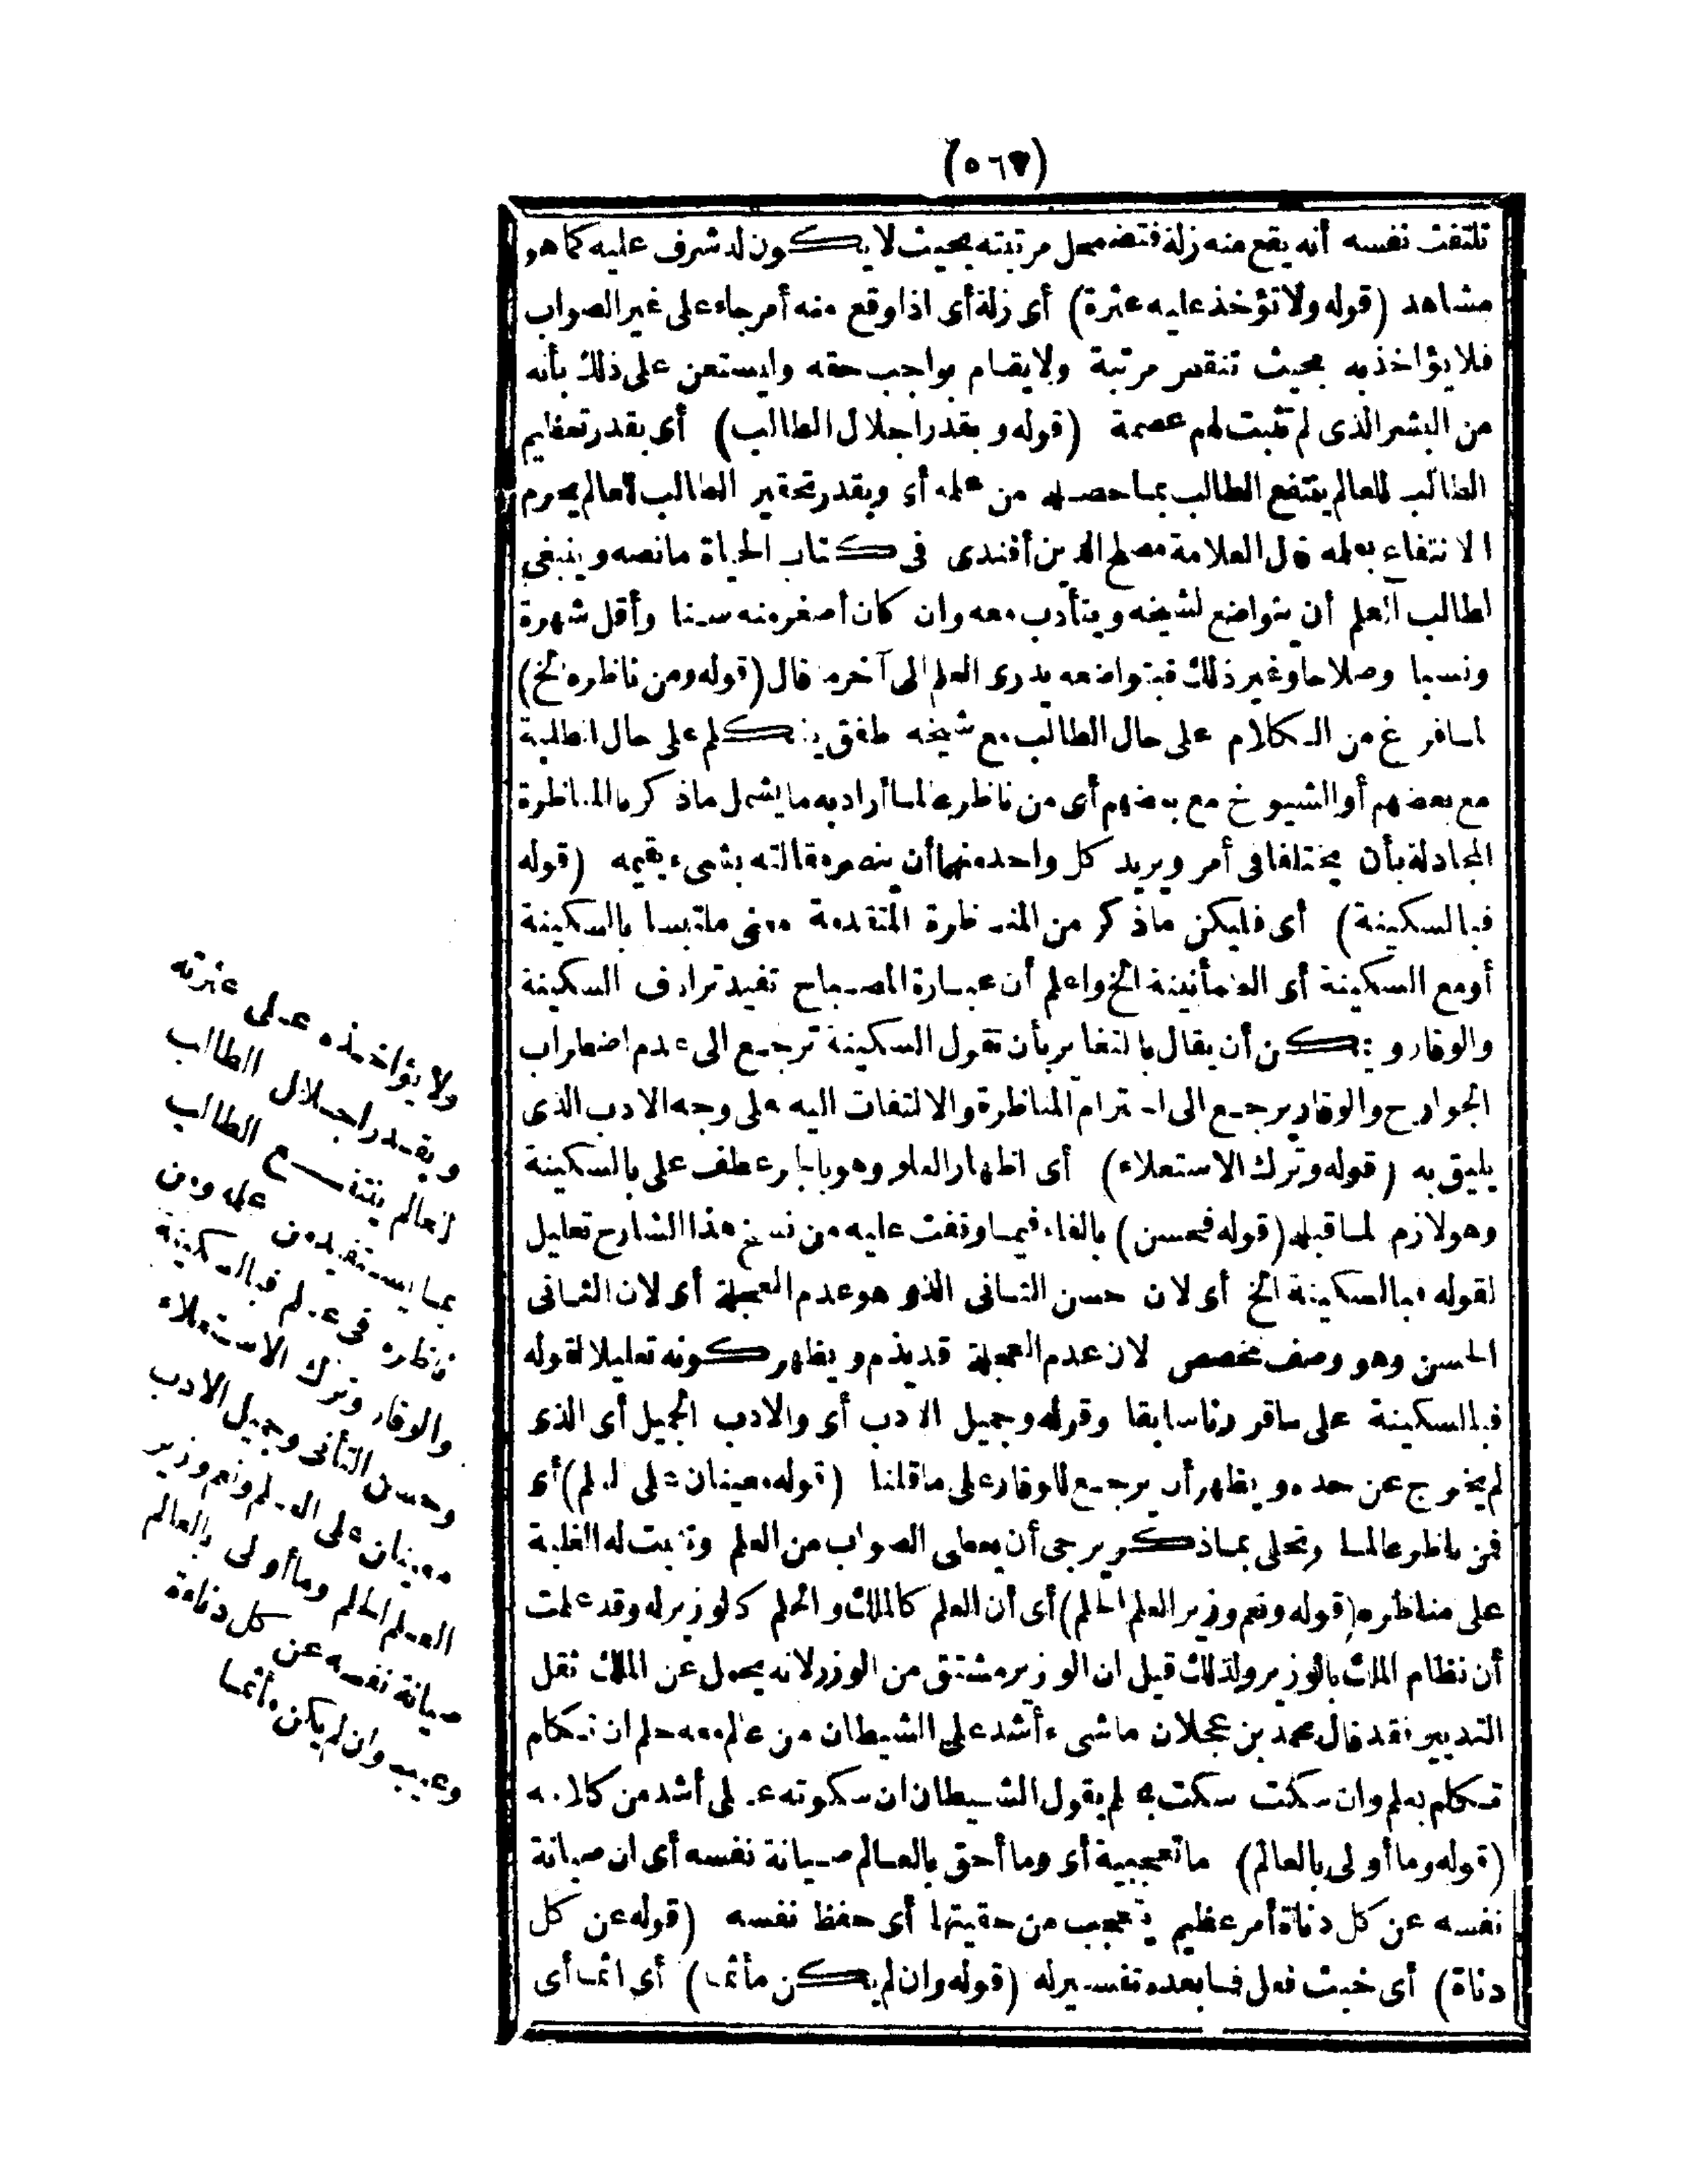 (٥٦٧)
تلتفت نفسه أنه يقع منه زلة فتضمحل مرتبته بحيث لا يكون له شرف عليه كما هو
مشاهد (قوله ولا تؤخذ عليه عثرة) أى زلة أى اذا وقع منه أمر جاء على غير الصواب
فلا يؤاخذ به بحيث تنقص مرتبة ولا يقام بواجب حقه وليستعن على ذلك بأنه
من البشر الذى لم تثبت لهم عصمة (قوله وبقدر اجلال الطالب) أى بقدر تعظيم
الطالب للعالم ينتفع الطالب بما حصله من علمه أى وبقدر تحقير الطالب للعالم يحرم
الانتفاء بعلمه قال العلامة مصلح الدين أفندى فى كتاب الحياة ما نصه وينبغى
لطالب العلم أن يتواضع لشيخه ويتأدب معه وان كان أصغر منه سنا وأقل شهرة
ونسبا وصلاحا وغير ذلك فبتواضعه يدرى العلم الى آخر ما قال (قوله ومن ناظره الخ)
لما فرغ من الكلام على حال الطالب مع شيخه طفق يتكلم على حال الطلبة
مع بعضهم أو الشيوخ مع بعضهم أى من ناظر عالما أراد به ما يشمل ما ذكر بالمناظرة
المجادلة بأن يختلفا فى أمر ويريد كل واحد منهما أن ينصر مقالته بشىء يقيمه (قوله
فبالسكينة) أى فليكن ما ذكر من المناظرة المتقدمة معنى ملتبسا بالسكينة
أو مع السكينة أى الطمأنينة الخ واعلم أن عبارة المصباح تفيد ترادف السكينة
والوقار ويمكن أن يقال بالتغاير بأن تقول السكينة ترجع الى عدم اضطراب
الجوارح والوقار يرجع الى احترام المناظرة والالتفات اليه على وجه الادب الذى
يليق به (قوله وترك الاستعلاء) أى اظهار العلو وهو بالجر عطف على بالسكينة
وهو لازم لما قبله (قوله فحسن) بالفاء فيما وقفت عليه من نسخ هذا الشارح تعليل
لقوله فبالسكينة الخ أى لان حسن التانى الذى هو عدم العجلة أى لان التانى
الحسن وهو وصف مخصص لان عدم العجلة قد يذم ويظهر كونه تعليلا لقوله
فبالسكينة على ما قررنا سابقا وقوله وجميل الادب أى والادب الجميل أى الذى
لم يخرج عن حده ويظهر أن يرجع للوقار على ما قلنا (قوله معينان على العلم) أى
فمن ناظر عالما وتحلى بما ذكر يرجى أن يعطى الصواب من العلم وتثبت له الغلبة
على مناظره (قوله ونعم وزير العلم الحلم) أى أن العلم كالملك والحلم كالوزير له وقد علمت
أن نظام الملك بالوزير ولذلك قيل ان الوزير مشتق من الوزر لانه يحمل عن الملك ثقل
التدبير فقد قال محمد بن عجلان ما شىء أشد على الشيطان من عالم معه حلم ان تكلم
تكلم بعلم وان سكت سكت بحلم يقول الشيطان ان سكوته على أشد من كلامه
(قوله وما أولى بالعالم) ما تعجيبية أى وما أحق بالعالم صيانة نفسه أى ان صيانة
نفسه عن كل دناة أمر عظيم يتعجب من حقيتها أى حفظ نفسه (قوله عن كل
دناة) أى خبث فعل فما بعده تفسير له (قوله وان لم يكن مأثما) أى اثما أى
ولا يؤاخذه على عثرته
وبقدر اجلال الطالب
لعالم ينتفع الطالب
بما يستفيد من علمه ومن
ناظره فى علم فبالسكينة
والوقار وترك الاستعلاء
وحسن التأنى وجميل الادب
معينان على العلم ونعم وزير
العلم الحلم وما أولى بالعالم
صيانة نفسه عن كل دناءة
وعيب وان لم يكن مأثما